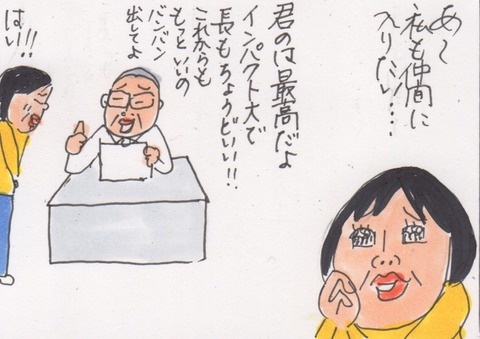 あ〜
私も仲間に
入りたい…
君のは最高だよ
インパクト大で
長もちょうどいい!!
これからも
もっといいの
バンバン
出してよ
はい!!